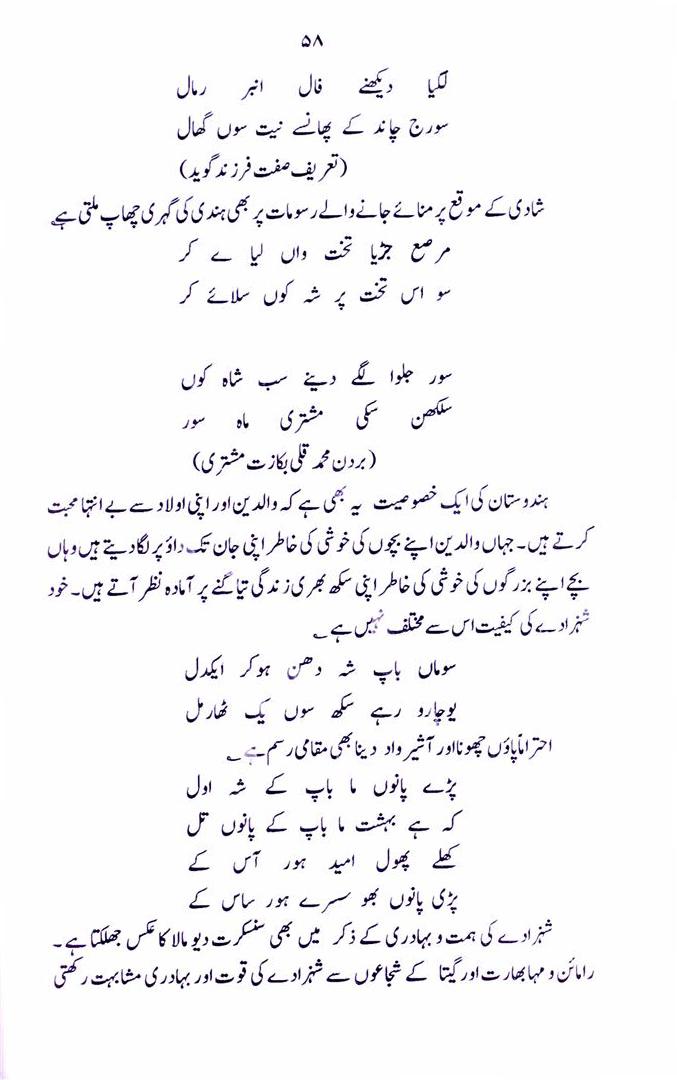 ۵۸
لگیا دیکھنے فال انبر رمال
سورج چاند کے پھانسے نیت سوں گھال
(تعریف صفت فرزند گوید)
شادی کے موقع پر منائے جانے والے رسومات پر بھی ہندی کی گہری چھاپ ملتی ہے
مرصع جڑیا تخت واں لیا ے کر
سو اس تخت پر شہ کوں سلائے کر
سور جلوا لگے دینے سب شاہ کوں
سلکھن سکی مشتری ماہ سور
(بردن محمد قلی بکازت مشتری)
ہندوستان کی ایک خصوصیت یہ بھی ہے کہ والدین اور اپنی اولاد سے بے انتہا محبت
کرتے ہیں۔ جہاں والدین اپنے بچوں کی خوشی کی خاطر اپنی جان تک داؤ پر لگا دیتے ہیں وہاں
بچے اپنے بزرگوں کی خوشی کی خاطر اپنی سکھ بھری زندگی تیاگنے پر آمادہ نظر آتے ہیں۔ خود
شہزادے کی کیفیت اس سے مختلف نہیں ہے ؂
سوماں باپ شہ دھن ہوکر ایکدل
یوچارو رہے سکھ سوں یک ٹھارمل
احتراماً پاؤں چھونا اور آشیرواد دینا بھی مقامی رسم ہے ؂
پڑے پانوں ما باپ کے شہ اول
کہ ہے بہشت ما باپ کے پانوں تل
کھلے پھول امید ہور آس کے
پڑی پانوں بھو سسرے ہور ساس کے
شہزادے کی ہمت و بہادری کے ذکر میں بھی سنسکرت دیو مالا کا عکس جھلکتا ہے۔
رامائن و مہابھارت اور گیتا کے شجاعوں سے شہزادے کی قوت اور بہادری مشابہت رکھتی